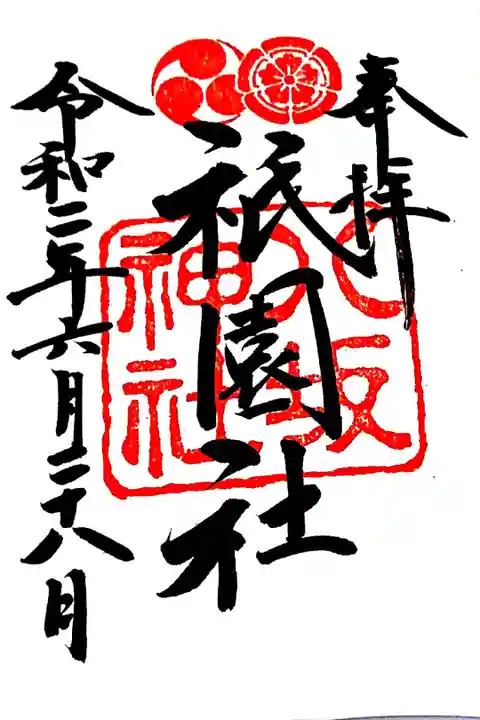 奉拝
祇園社
八坂
神社
令和二年六月二十八日